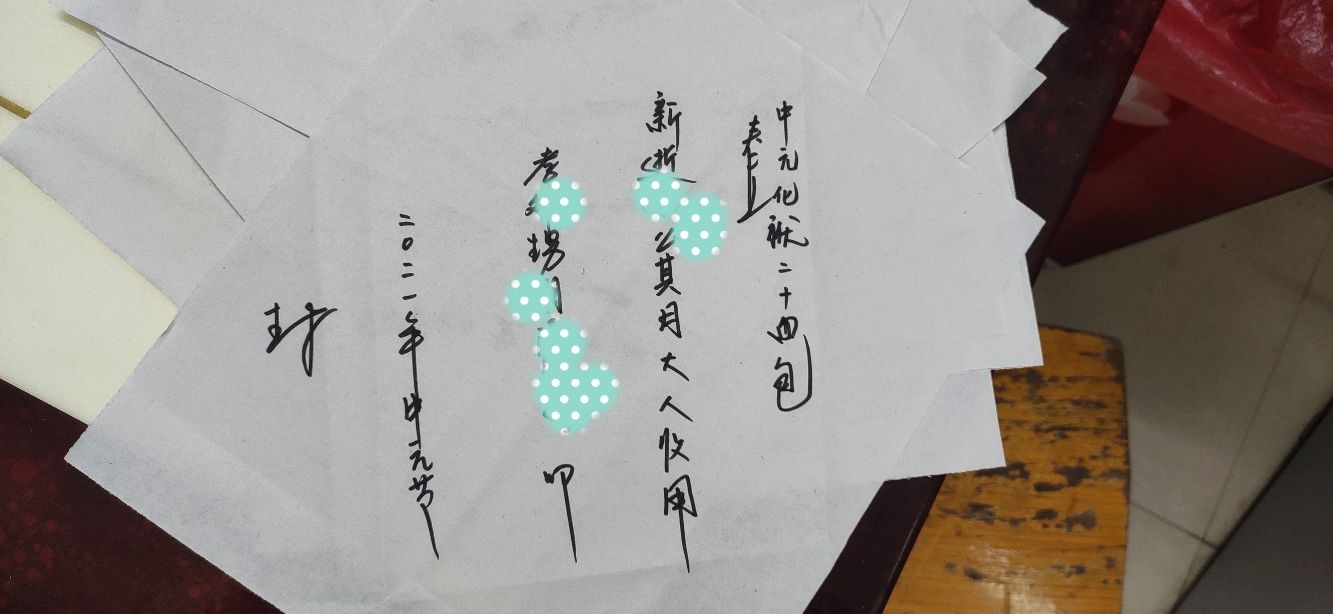 中元化袱二十四包
奉上
新逝公其月大人收用
孝叩
二0二一年中元节
封